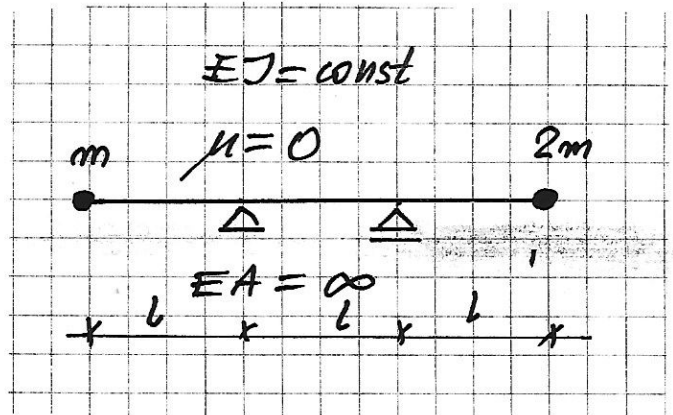 EJ = const
μ = 0
m 2m
EA = ∞
l l l